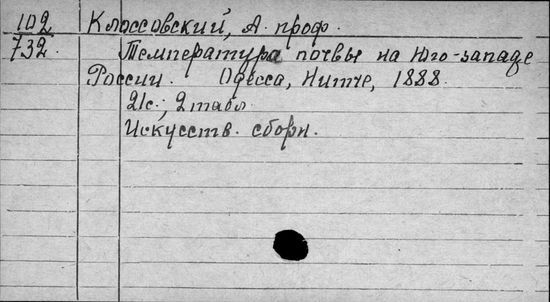 102 Клоссовский, А. проф.
732. Температура почвы на Юго-западе
России. Одесса, Нитче, 1888.
21с.; 2 табл
Искусств. сборн.